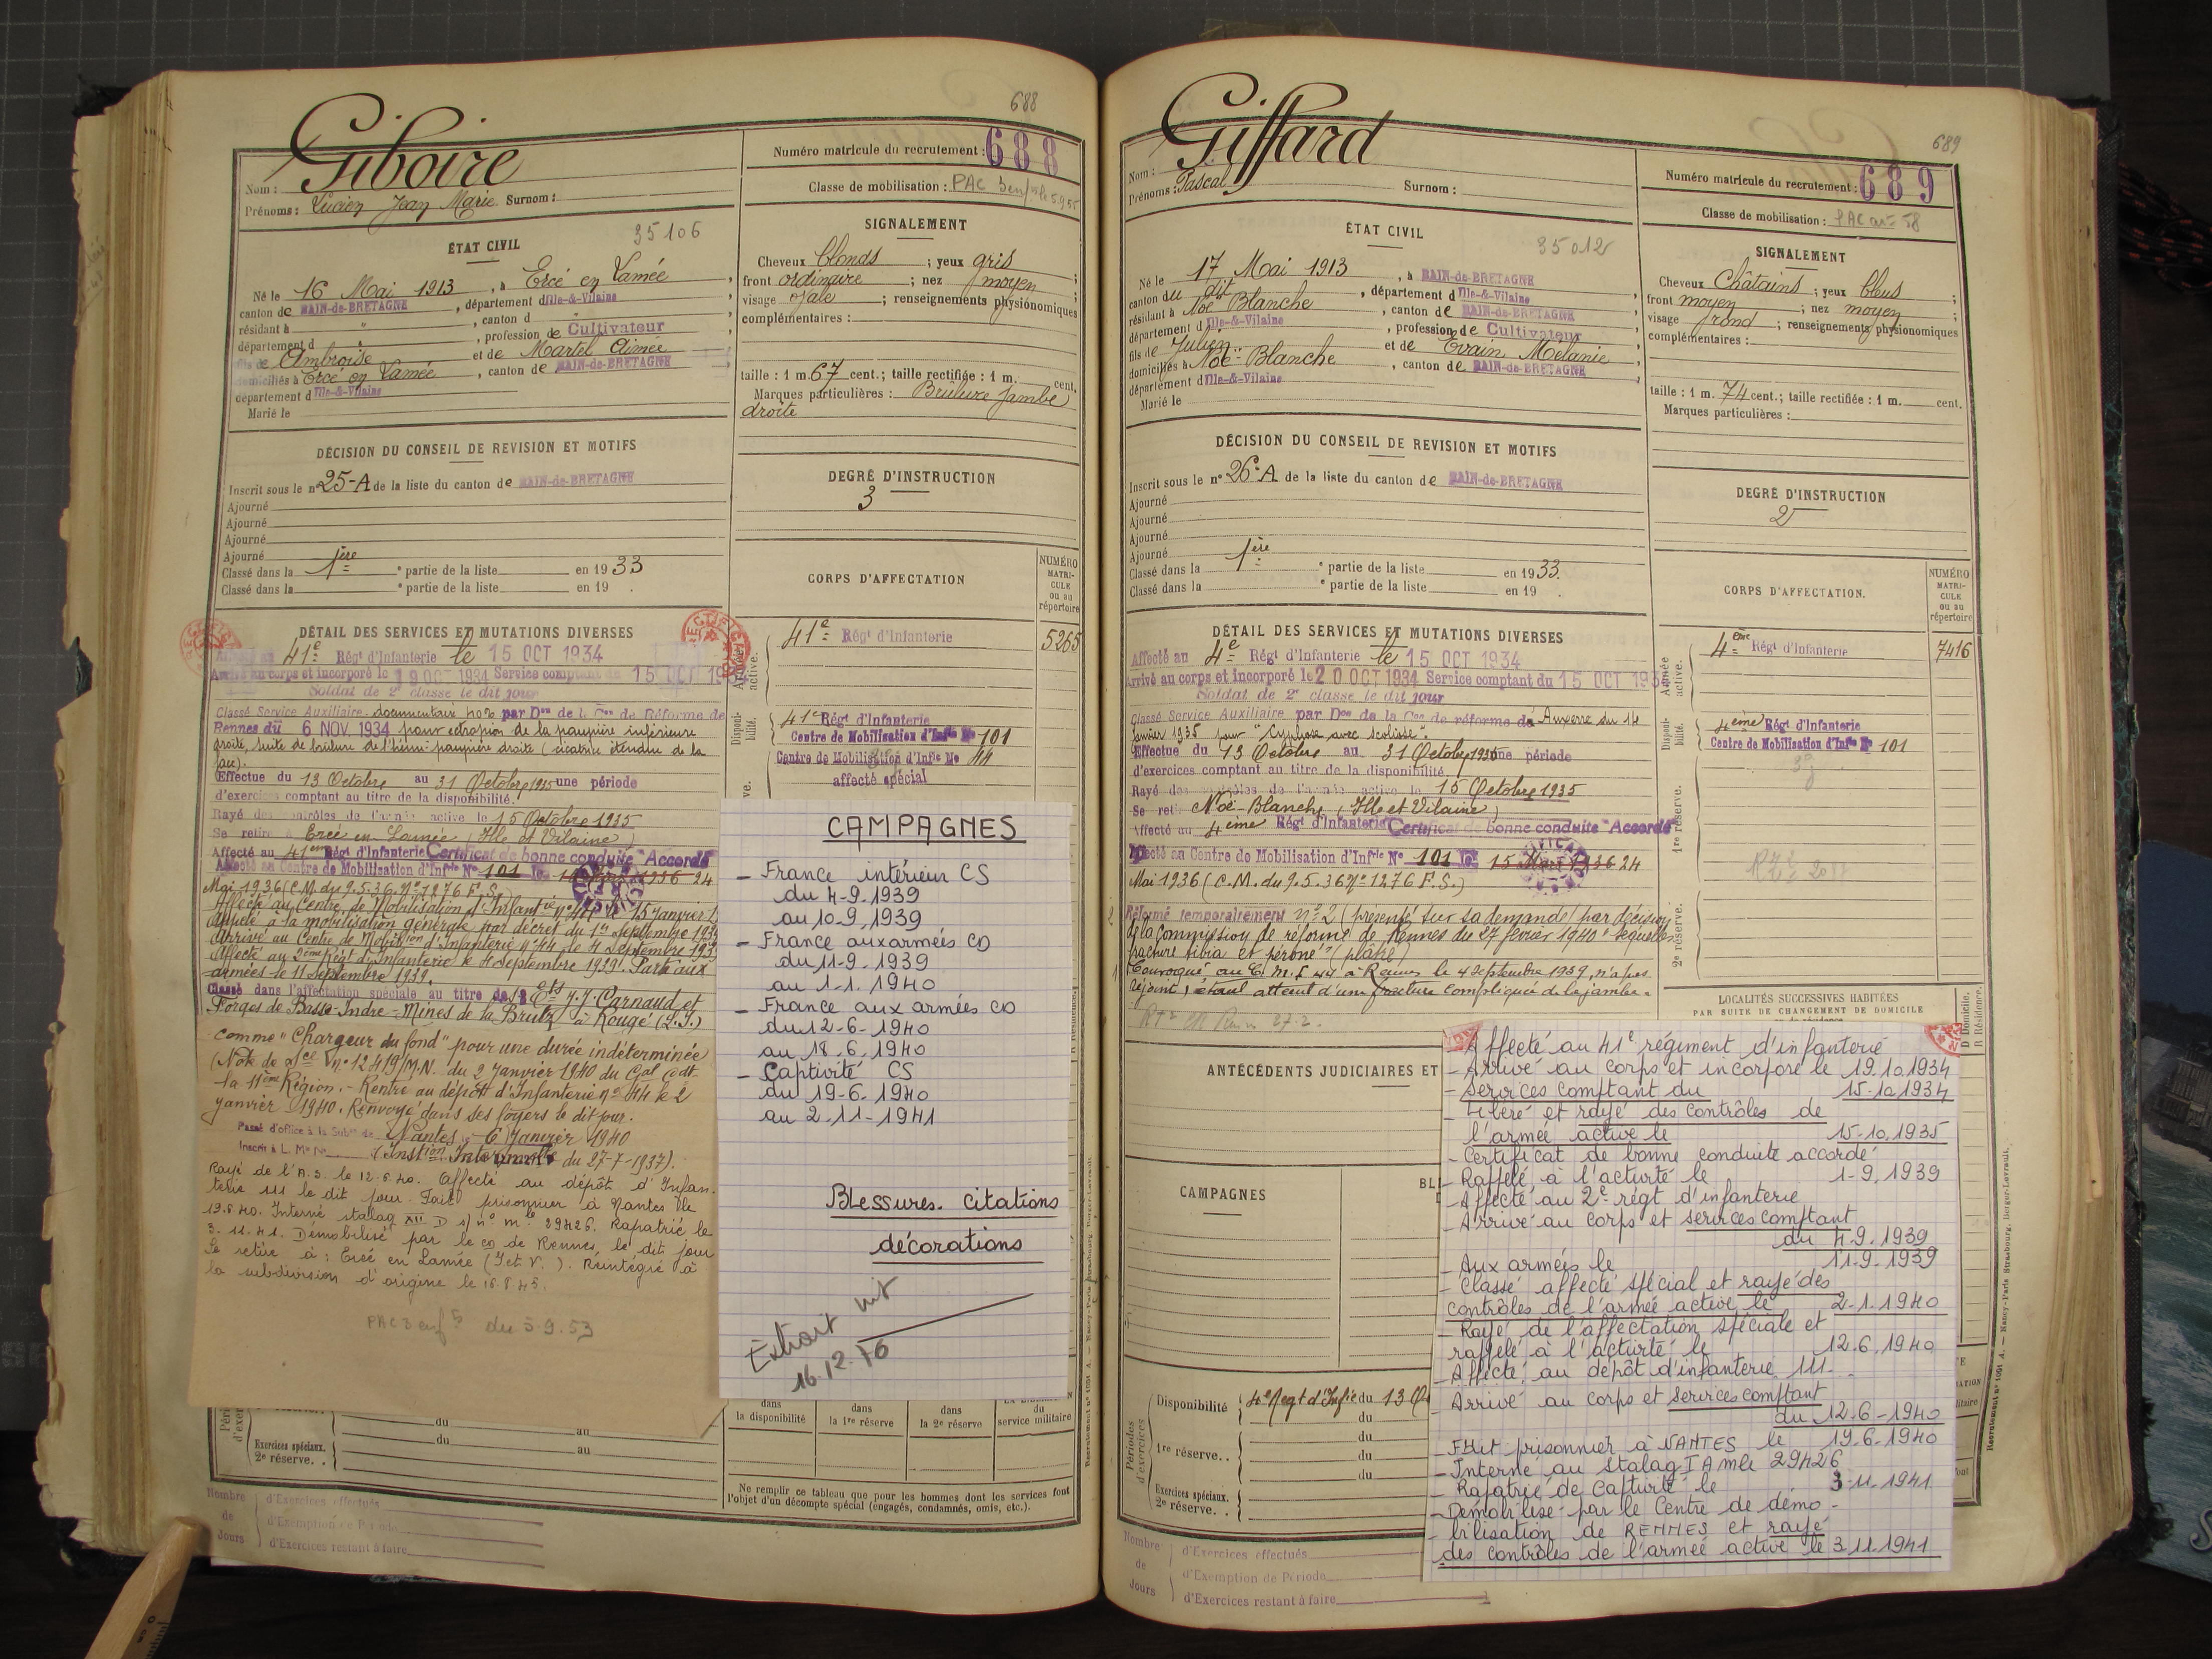 688
Giboire
Nom :
Prénoms : Lucien Jean Marie Surnom :
Numéro matricule du recrutement : 688
Classe de mobilisation : PAC 3 enf
ÉTAT CIVIL
35106
Né le 16 Mai 1913, à Ercé en Lamée,
canton de BAIN-de-BRETAGNE, département d'Ille-&-Vilaine
résidant à " , canton d "
département d " , profession de Cultivateur
fils de Ambroise et de Martel Aimée
domiciliés à Ercé en Lamée, canton de BAIN-de-BRETAGNE
département d'Ille-&-Vilaine
Marié le
SIGNALEMENT
Cheveux blonds ; yeux gris ;
front ordinaire ; nez moyen ;
visage ovale ; renseignements physionomiques
complémentaires :
taille : 1 m. 67 cent.; taille rectifiée : 1 m. cent.
Marques particulières : Brûlure jambe
droite
DÉCISION DU CONSEIL DE REVISION ET MOTIFS
Inscrit sous le n° 25-A de la liste du canton de BAIN-de-BRETAGNE
Ajourné
Ajourné
Ajourné
Ajourné
Classé dans la 1ère partie de la liste en 1933
Classé dans la e partie de la liste en 19 .
DEGRÉ D'INSTRUCTION
3
CORPS D'AFFECTATION
NUMÉRO
MATRI-
CULE
ou au
répertoire
Armée active.
41e Régt d'Infanterie
5265
Disponi-
bilité.
41e Régt d'Infanterie
Centre de Mobilisation d'Infie N° 101
Centre de Mobilisation d'Infie N° 44
affecté spécial
DÉTAIL DES SERVICES ET MUTATIONS DIVERSES
Affecté au 41e Régt d'Infanterie le 15 OCT 1934
Arrivé au corps et incorporé le 19 OCT 1934 Service comptant du 15 OCT 1934
Soldat de 2e classe le dit jour
Classé Service Auxiliaire. documentaire 40% par Don de la Con de Réforme de
Rennes du 6 NOV. 1934 pour ectropion de la paupière inférieure
droite, suite de brûlure de l'hémi-paupière droite (cicatrice étendue de la
face).
Effectue du 13 Octobre au 31 Octobre 1935 une période
d'exercices comptant au titre de la disponibilité.
Rayé des contrôles de l'armée active le 15 Octobre 1935
Se retire à Ercé en Lamée (Ille et Vilaine)
Affecté au 41ème Régt d'Infanterie Certificat de bonne conduite "Accordé"
Affecté au Centre de Mobilisation d'Infie N° 101 le 1936 24
Mai 1936 (C.M. du 9.5.36 N° 1276 F.S.)
Affecté au Centre de Mobilisation d'Infanterie n° 44 le 15 janvier
Appelé à la mobilisation générale par décret du 1er septembre 1939
Arrivé au Centre de Mobilisation d'Infanterie n° 44 le 4 Septembre 1939
Affecté au 2ème Régt d'Infanterie le 4 Septembre 1939. Parti aux
armées le 11 Septembre 1939.
Classé dans l'affectation spéciale au titre des Ets J.J. Carnaud et
Forges de Basse-Indre - Mines de la Brutz à Rougé (L.I.)
comme "Chargeur du fond" pour une durée indéterminée
(Note de Sce n° 12419/M.N. du 2 janvier 1940 du Gal Cdt
la 11ème Région. - Rentré au dépôt d'Infanterie n° 44 le 2
janvier 1940. Renvoyé dans ses foyers le dit jour.
Passé d'office à la Subon de Nantes le 6 Janvier 1940
Inscrit à L. Me No (Instion Interminlle du 27-7-1937).
Rayé de l'A.S. le 12.6.40. Affecté au dépôt d'Infan-
terie 111 le dit jour. Fait prisonnier à Nantes le
19.6.40. Interné stalag XII D s/ n° mle 29426. Rapatrié le
3.11.41. Démobilisé par le CD de Rennes, le dit jour
Se retire à : Ercé en Lamée (I et V.). Réintégré à
la subdivision d'origine le 16.8.45.
PAC 3 enfts du 5.9.53
CAMPAGNES
- France intérieur CS
du 4-9.1939
au 10-9.1939
- France aux armées CD
du 11-9.1939
au 1-1.1940
- France aux armées CD
du 12-6-1940
au 18.6.1940
- Captivité CS
du 19-6.1940
au 2.11-1941
Blessures. citations
décorations
Extrait mt
16.12.76
du au
Exercices spéciaux.
2e réserve. .
du au
dans la disponibilité
dans la 1re réserve
dans la 2e réserve
du service militaire
Ne remplir ce tableau que pour les hommes dont les services font
l'objet d'un décompte spécial (engagés, condamnés, omis, etc.).
Nombre de Jours
d'Exercices effectués
d'Exemption de Période
d'Exercices restant à faire
689
Giffard
Nom :
Prénoms : Pascal Surnom :
Numéro matricule du recrutement : 689
Classe de mobilisation : PAC
ÉTAT CIVIL
35012
Né le 17 Mai 1913, à BAIN-de-BRETAGNE
canton du dit, département d'Ille-&-Vilaine
résidant à Noë Blanche, canton de BAIN-de-BRETAGNE
département d'Ille-&-Vilaine, profession de Cultivateur
fils de Julien et de Evain Mélanie
domiciliés à Noë-Blanche, canton de BAIN-de-BRETAGNE
département d'Ille-&-Vilaine
Marié le
SIGNALEMENT
Cheveux Châtains ; yeux bleus ;
front moyen ; nez moyen ;
visage rond ; renseignements physionomiques
complémentaires :
taille : 1 m. 74 cent.; taille rectifiée : 1 m. cent.
Marques particulières :
DÉCISION DU CONSEIL DE REVISION ET MOTIFS
Inscrit sous le n° 26-A de la liste du canton de BAIN-de-BRETAGNE
Ajourné
Ajourné
Ajourné
Ajourné
Classé dans la 1ère partie de la liste en 1933.
Classé dans la e partie de la liste en 19 .
DEGRÉ D'INSTRUCTION
2
CORPS D'AFFECTATION.
NUMÉRO
MATRI-
CULE
ou au
répertoire
Armée active.
4ème Régt d'Infanterie
7416
Disponi-
bilité.
4ème Régt d'Infanterie
Centre de Mobilisation d'Infie N° 101
1re réserve.
2e réserve.
DÉTAIL DES SERVICES ET MUTATIONS DIVERSES
Affecté au 4e Régt d'Infanterie le 15 OCT 1934
Arrivé au corps et incorporé le 20 OCT 1934 Service comptant du 15 OCT 1934
Soldat de 2e classe le dit jour
Classé Service Auxiliaire par Don de la Con de réforme de Auxerre du 14
Janvier 1935 pour "Cyphose avec scoliose".
Effectue du 13 Octobre au 31 Octobre 1935 une période
d'exercices comptant au titre de la disponibilité
Rayé des contrôles de l'armée active le 15 Octobre 1935
Se retire Noë-Blanche (Ille et Vilaine)
Affecté au 4ème Régt d'Infanterie Certificat de bonne conduite "Accordé"
Affecté au Centre de Mobilisation d'Infie N° 101 le 15 Mars 1936 24
Mai 1936 (C.M. du 9.5.36 N° 1276 F.S.)
Réformé temporairement n° 2 (présenté sur sa demande) par décision
de la Commission de réforme de Rennes du 27 février 1940 "séquelles
fracture tibia et péroné" (plâtré)
Convoqué au C.M.I. 44 à Rennes le 4 septembre 1939, n'a pas
rejoint, étant atteint d'une fracture compliquée de la jambe.
LOCALITÉS SUCCESSIVES HABITÉES
PAR SUITE DE CHANGEMENT DE DOMICILE
D Domicile.
R Résidence.
ANTÉCÉDENTS JUDICIAIRES ET
CAMPAGNES
BL
- Affecté au 41e régiment d'infanterie
- Arrivé au corps et incorporé le 19.10.1934
- Services comptant du 15-10.1934
- Libéré et rayé des contrôles de
l'armée active le 15-10.1935
- Certificat de bonne conduite accordé
- Rappelé à l'activité le 1-9.1939
- Affecté au 2e régt d'infanterie
- Arrivé au corps et services comptant
du 4.9.1939
- Aux armées le 11-9.1939
- Classé affecté spécial et rayé des
contrôles de l'armée active le 2-1.1940
- Rayé de l'affectation spéciale et
rappelé à l'activité le 12.6.1940
- Affecté au dépôt d'infanterie 111
- Arrivé au corps et services comptant
du 12.6-1940
- Fait prisonnier à NANTES le 19.6.1940
- Interné au stalag I A mle 29426
- Rapatrié de captivité le 3-11.1941
- Démobilisé par le Centre de démo-
- bilisation de RENNES et rayé
des contrôles de l'armée active le 3.11.1941
Périodes d'exercices
Disponibilité 4e Régt d'Infie du 13
du
1re réserve. .
du
du
du
Exercices spéciaux.
2e réserve. .
Nombre de Jours
d'Exercices effectués
d'Exemption de Période
d'Exercices restant à faire